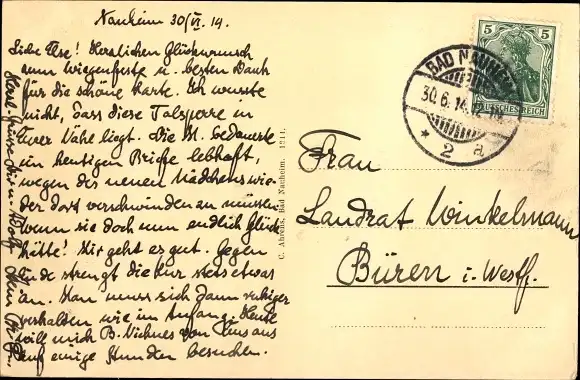 Nauheim 30/VI. 14.
Liebe Else! Herzlichen Glückwunsch
zum Wiegenfeste u. besten Dank
für die schöne Karte. Ich wusste
nicht, dass diese Talsperre in
Eurer Nähe liegt. Die M. bedauerte
im heutigen Briefe lebhaft,
wegen des neuen Mädchens wie-
der dort verschwinden zu müssen.
Wenn sie doch nun endlich Glück
hätte! Mir geht es gut. Gegen
Ende strengt die Kur stets etwas
an. Man muss sich dann ruhiger
verhalten wie im Anfang. Heute
will mich B. von Ems aus
auf einige Stunden besuchen.
C. Ahrens, Bad Nauheim. 1214.
5 5
DEUTSCHES REICH
BAD NAUHEIM
30.6.14.12-1N
* 2 a
Frau
Landrat Winkelmann
Büren i. Westf.